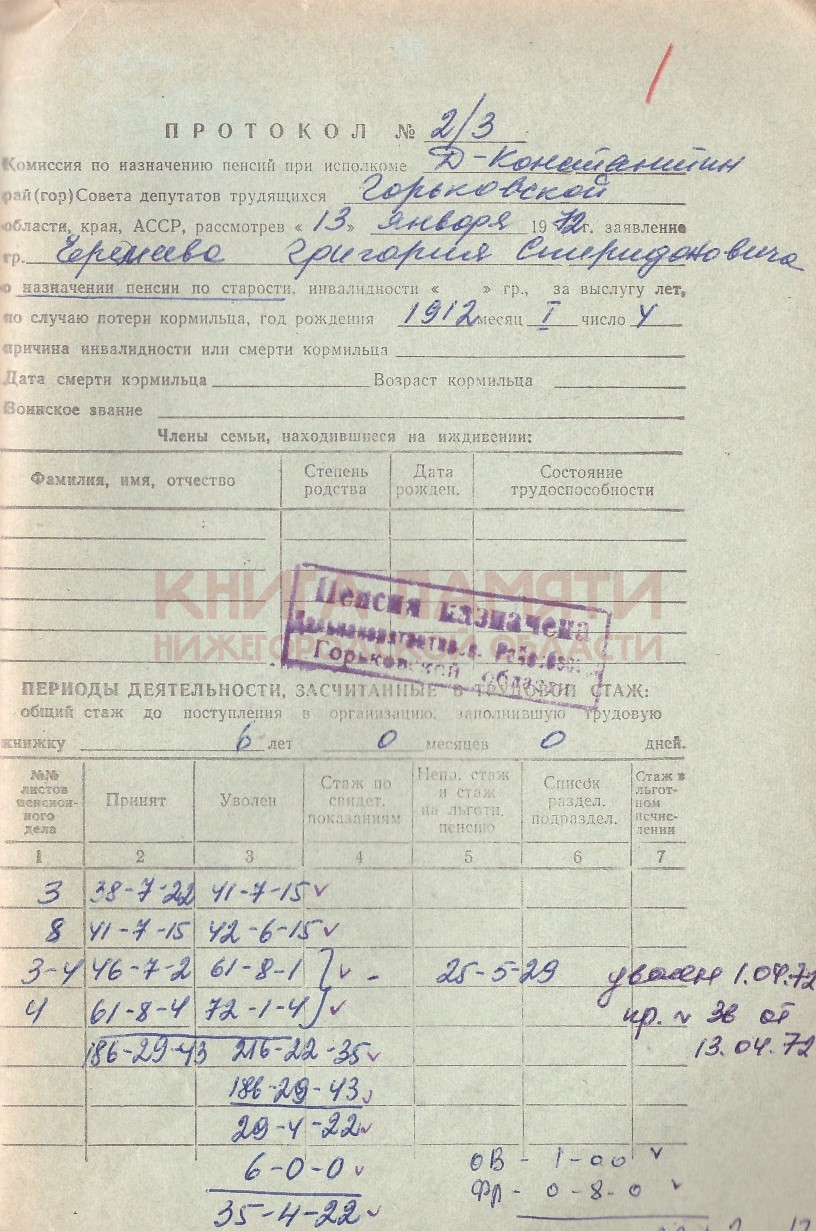 ПРОТОКОЛ № 2/3
Комиссия по назначению пенсий при исполкоме Д-Константин
рай(гор)Совета депутатов трудящихся Горьковской
области, края, АССР, рассмотрев «13» января 1972г. заявление
гр. Григория Спиридоновича
о назначении пенсии по старости, инвалидности « » гр., за выслугу лет,
по случаю потери кормильца, год рождения 1912 месяц I число 4
причина инвалидности или смерти кормильца
Дата смерти кормильца Возраст кормильца
Воинское звание
Члены семьи, находившиеся на иждивении:
Фамилия, имя, отчество Степень родства Дата рожден. Состояние трудоспособности
КНИГА ПАМЯТИ
НИЖЕГОРОДСКОЙ ОБЛАСТИ
Пенсия назначена
Горьковской области
ПЕРИОДЫ ДЕЯТЕЛЬНОСТИ, ЗАСЧИТАННЫЕ В ТРУДОВОЙ СТАЖ:
общий стаж до поступления в организацию, заполнившую трудовую
книжку 6 лет 0 месяцев 0 дней.
№№ листов пенсион-ного дела Принят Уволен Стаж по свидет. показаниям Непр. стаж и стаж на льготн. пенсию Список раздел. подраздел. Стаж в льгот-ном исчис-лении
1 2 3 4 5 6 7
3 38-7-22 41-7-15
8 41-7-15 42-6-15
3-4 46-7-2 61-8-1 25-5-29 уволен 1.04.72
4 61-8-4 72-1-4 пр. № 38 от
186-29-43 216-22-35 13.04.72
186-29-43
29-4-22
6-0-0 ОВ - 1-00
ФР - 0-8-0
35-4-22